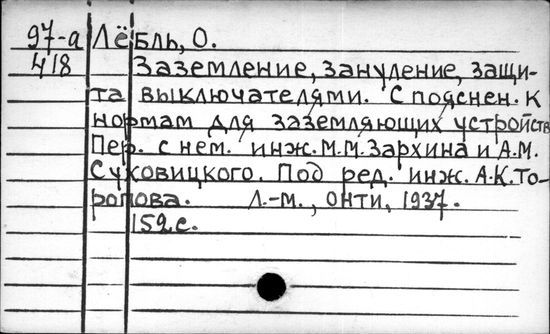 97-а Лёбль, О.
418 Заземление, зануление, защи-
та выключателями. С пояснен. к
нормам для заземляющих устройств
Пер. с нем. инж. М.М. Зархина и А.М.
Суховицкого. Под ред. инж. А.К. То-
ропова. Л.-М., ОНТИ, 1937.
152 с.